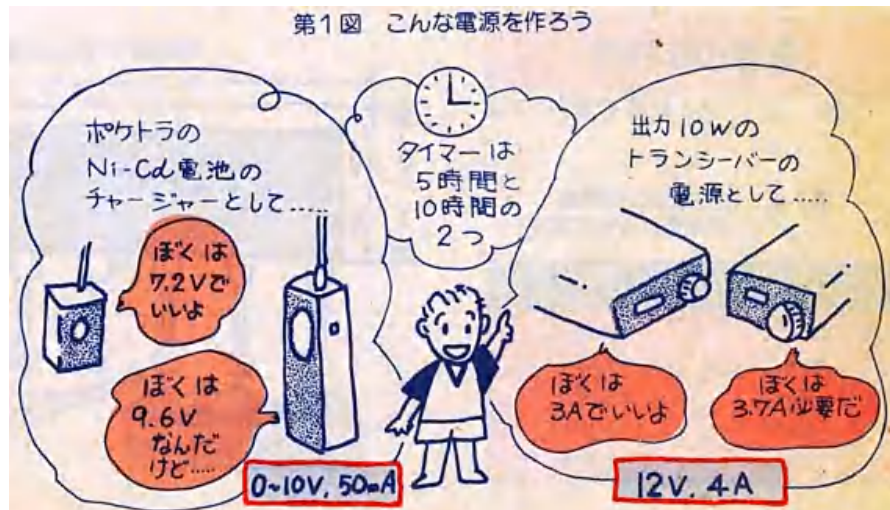 第1図 こんな電源を作ろう
ポケトラの
Ni-Cd電池の
チャージャーとして.....
ぼくは
7.2Vで
いいよ
ぼくは
9.6V
なんだ
けど.....
0~10V, 50mA
タイマーは
5時間と
10時間の
2つ
出力10Wの
トランシーバーの
電源として.....
ぼくは
3Aでいいよ
ぼくは
3.7A必要だ
12V, 4A